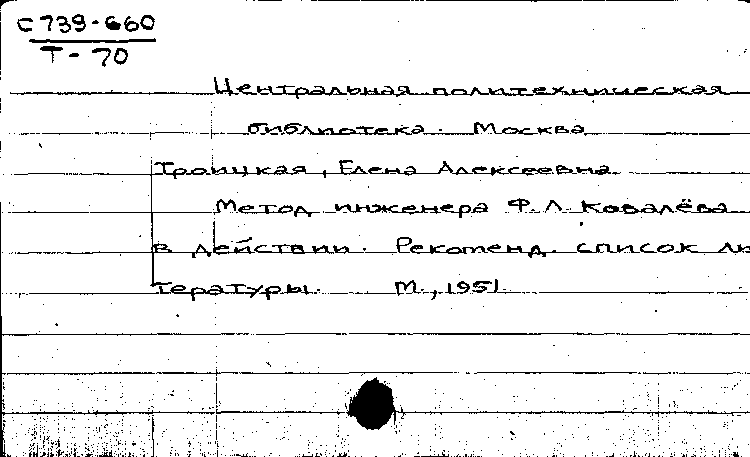 С739-660
Т-70
Центральная политехническая
библиотека. Москва
Троицкая, Елена Алексеевна.
Метод инженера Ф.Л. Ковалёва
в действии. Рекоменд. список ли
тературы. М., 1951.